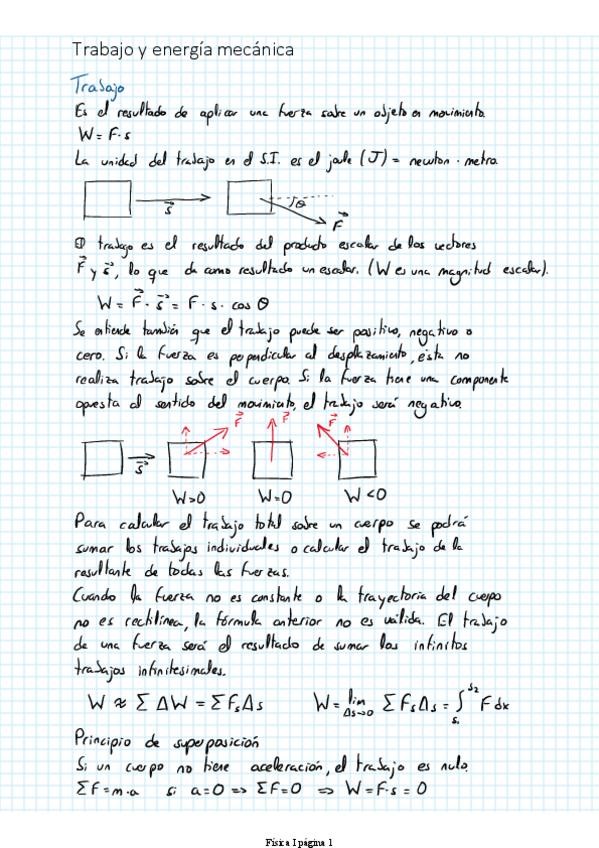 Trabajo y energía mecánica
Trabajo
Es el resultado de aplicar una fuerza sobre un objeto en movimiento.
W = F·s
La unidad del trabajo en el S.I. es el joule (J) = newton · metro.
s⃗ θ F⃗
El trabajo es el resultado del producto escalar de los vectores
F⃗ y s⃗, lo que da como resultado un escalar. (W es una magnitud escalar).
W = F⃗ · s⃗ = F · s · cos θ
Se entiende también que el trabajo puede ser positivo, negativo o
cero. Si la fuerza es perpendicular al desplazamiento, ésta no
realiza trabajo sobre el cuerpo. Si la fuerza tiene una componente
opuesta al sentido del movimiento, el trabajo será negativo.
s⃗ F⃗ F⃗ F⃗
W>0 W=0 W<0
Para calcular el trabajo total sobre un cuerpo se podrá
sumar los trabajos individuales o calcular el trabajo de la
resultante de todas las fuerzas.
Cuando la fuerza no es constante o la trayectoria del cuerpo
no es rectilínea, la fórmula anterior no es válida. El trabajo
de una fuerza será el resultado de sumar los infinitos
trabajos infinitesimales.
W ≈ Σ ΔW = ΣFsΔs W = lim Δs→0 Σ FsΔs = ∫s₁^s₂ F dx
Principio de superposición
Si un cuerpo no tiene aceleración, el trabajo es nulo.
ΣF = m·a si a=0 => ΣF=0 => W=F·s = 0
Física I página 1